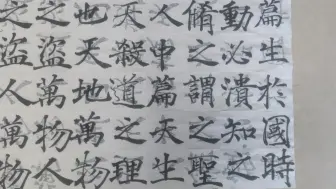 篇生於國時
動必潰知之
脩之謂之聖
人中篇天生
天殺道之理
也天地萬物
之盜萬物人
之盜人萬物